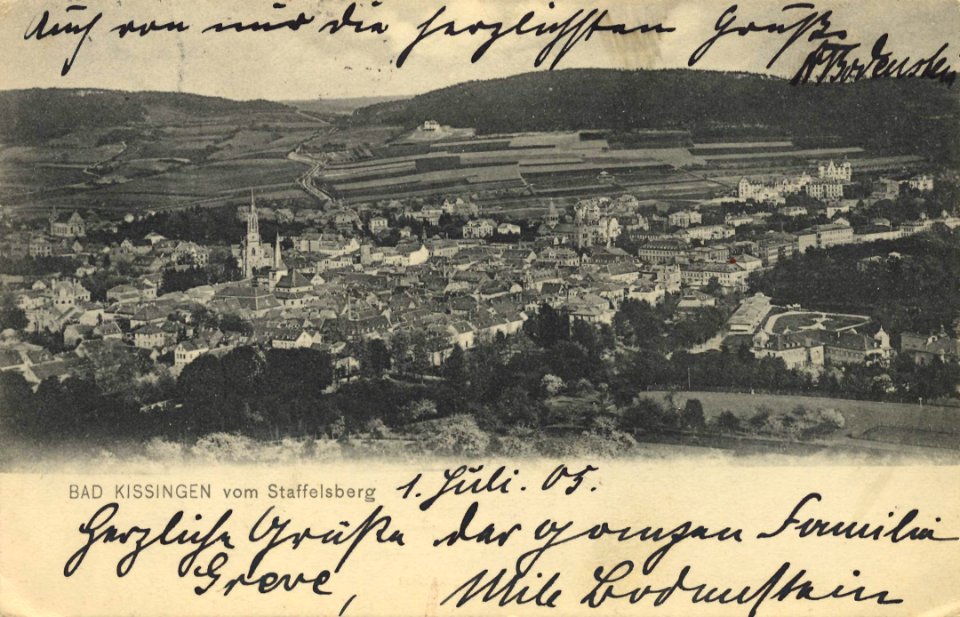 Auch von mir die herzlichsten Grüße.
A Bodenstein
BAD KISSINGEN vom Staffelsberg
1. Juli. 05.
Herzliche Grüße der ganzen Familie
Greve, Mile Bodenstein